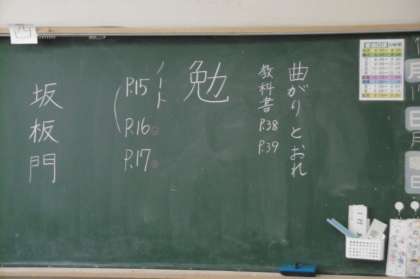 曲がりとおれ
教科書 P.38
P.39
勉
ノート
P.15
P.16
P.17
坂板門
月
日
月
日